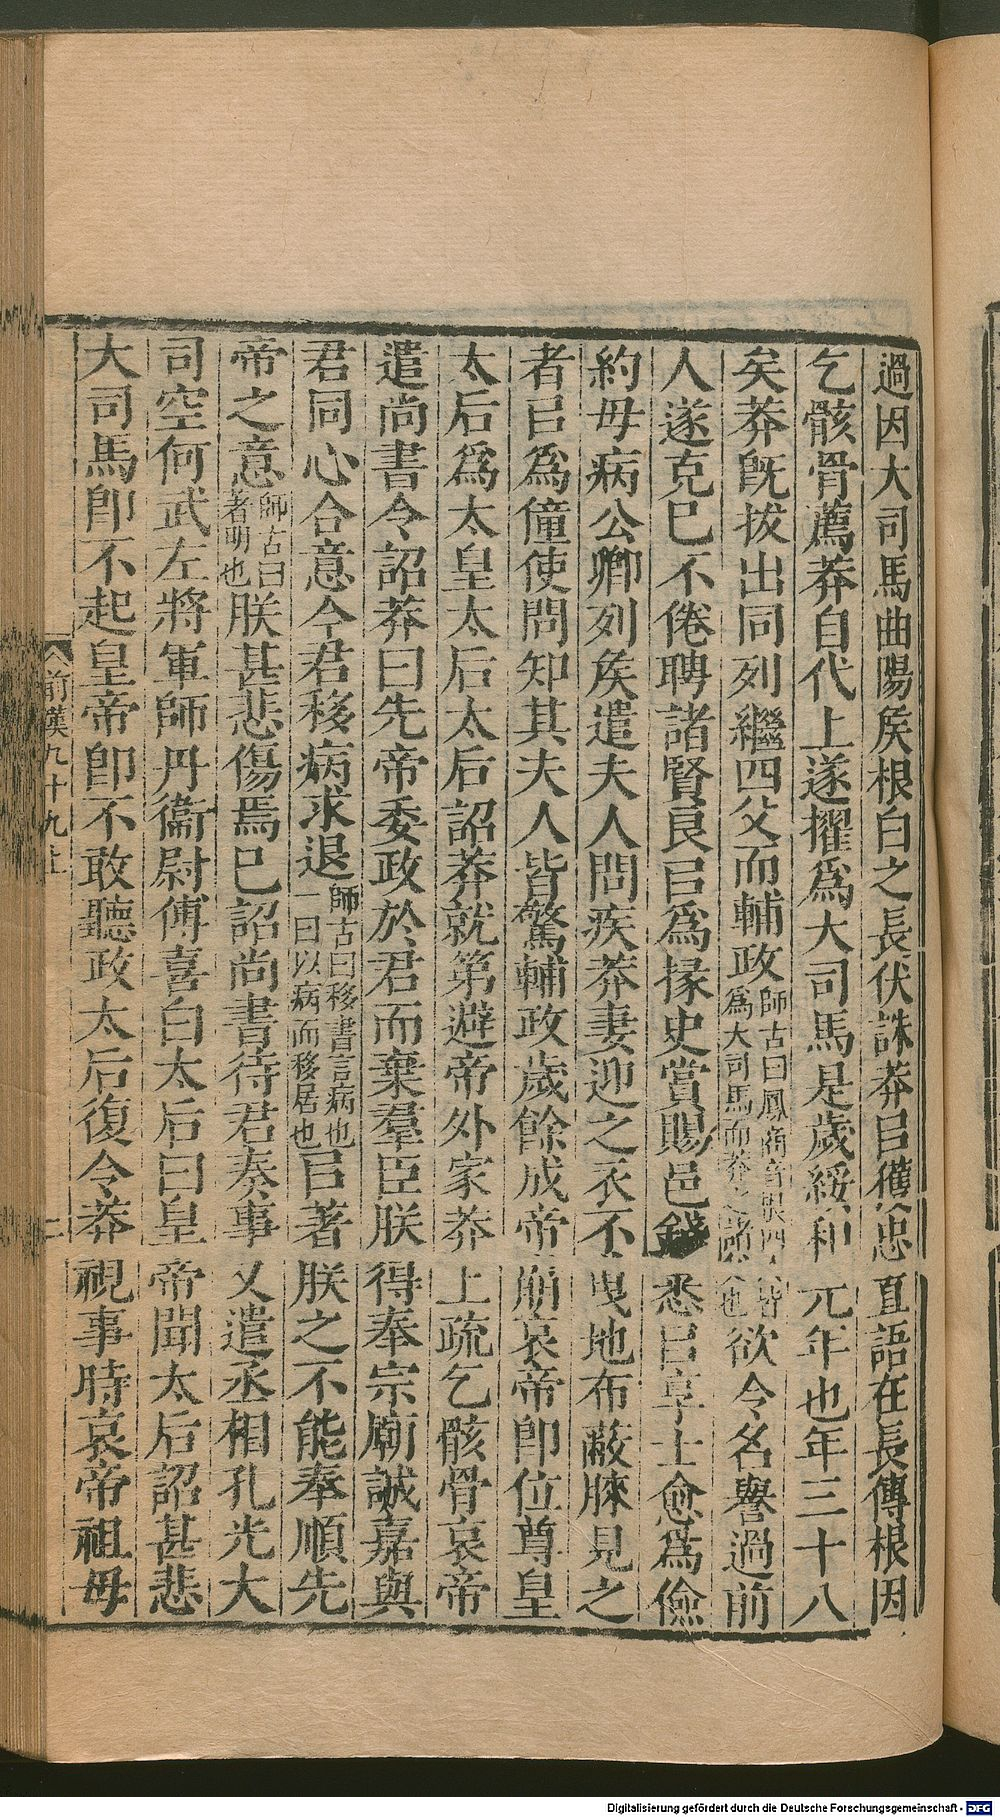 過因大司馬曲陽矦根白之長伏誅莽㠯獲忠直語在長傳根因
乞骸骨薦莽自代上遂擢爲大司馬是歲綏和元年也年三十八
矣莽旣拔出同列繼四父而輔政師古曰鳳商音根四人皆爲大司馬而莽之諸父也欲令名譽過前
人遂克己不倦聘諸賢良㠯爲掾史賞賜邑錢悉㠯享士愈爲儉
約母病公卿列矦遣夫人問疾莽妻迎之衣不曳地布蔽膝見之
者㠯爲僮使問知其夫人皆驚輔政歲餘成帝崩哀帝即位尊皇
太后爲太皇太后太后詔莽就第避帝外家莽上疏乞骸骨哀帝
遣尚書令詔莽曰先帝委政於君而棄羣臣朕得奉宗廟誠嘉與
君同心合意今君移病求退師古曰移書言病也一曰以病而移居也㠯著朕之不能奉順先
帝之意師古曰著明也朕甚悲傷焉已詔尚書待君奏事又遣丞相孔光大
司空何武左將軍師丹衞尉傅喜白太后曰皇帝聞太后詔甚悲
大司馬即不起皇帝即不敢聽政太后復令莽視事時哀帝祖母
前漢九十九上
二
Digitalisierung gefördert durch die Deutsche Forschungsgemeinschaft - DFG